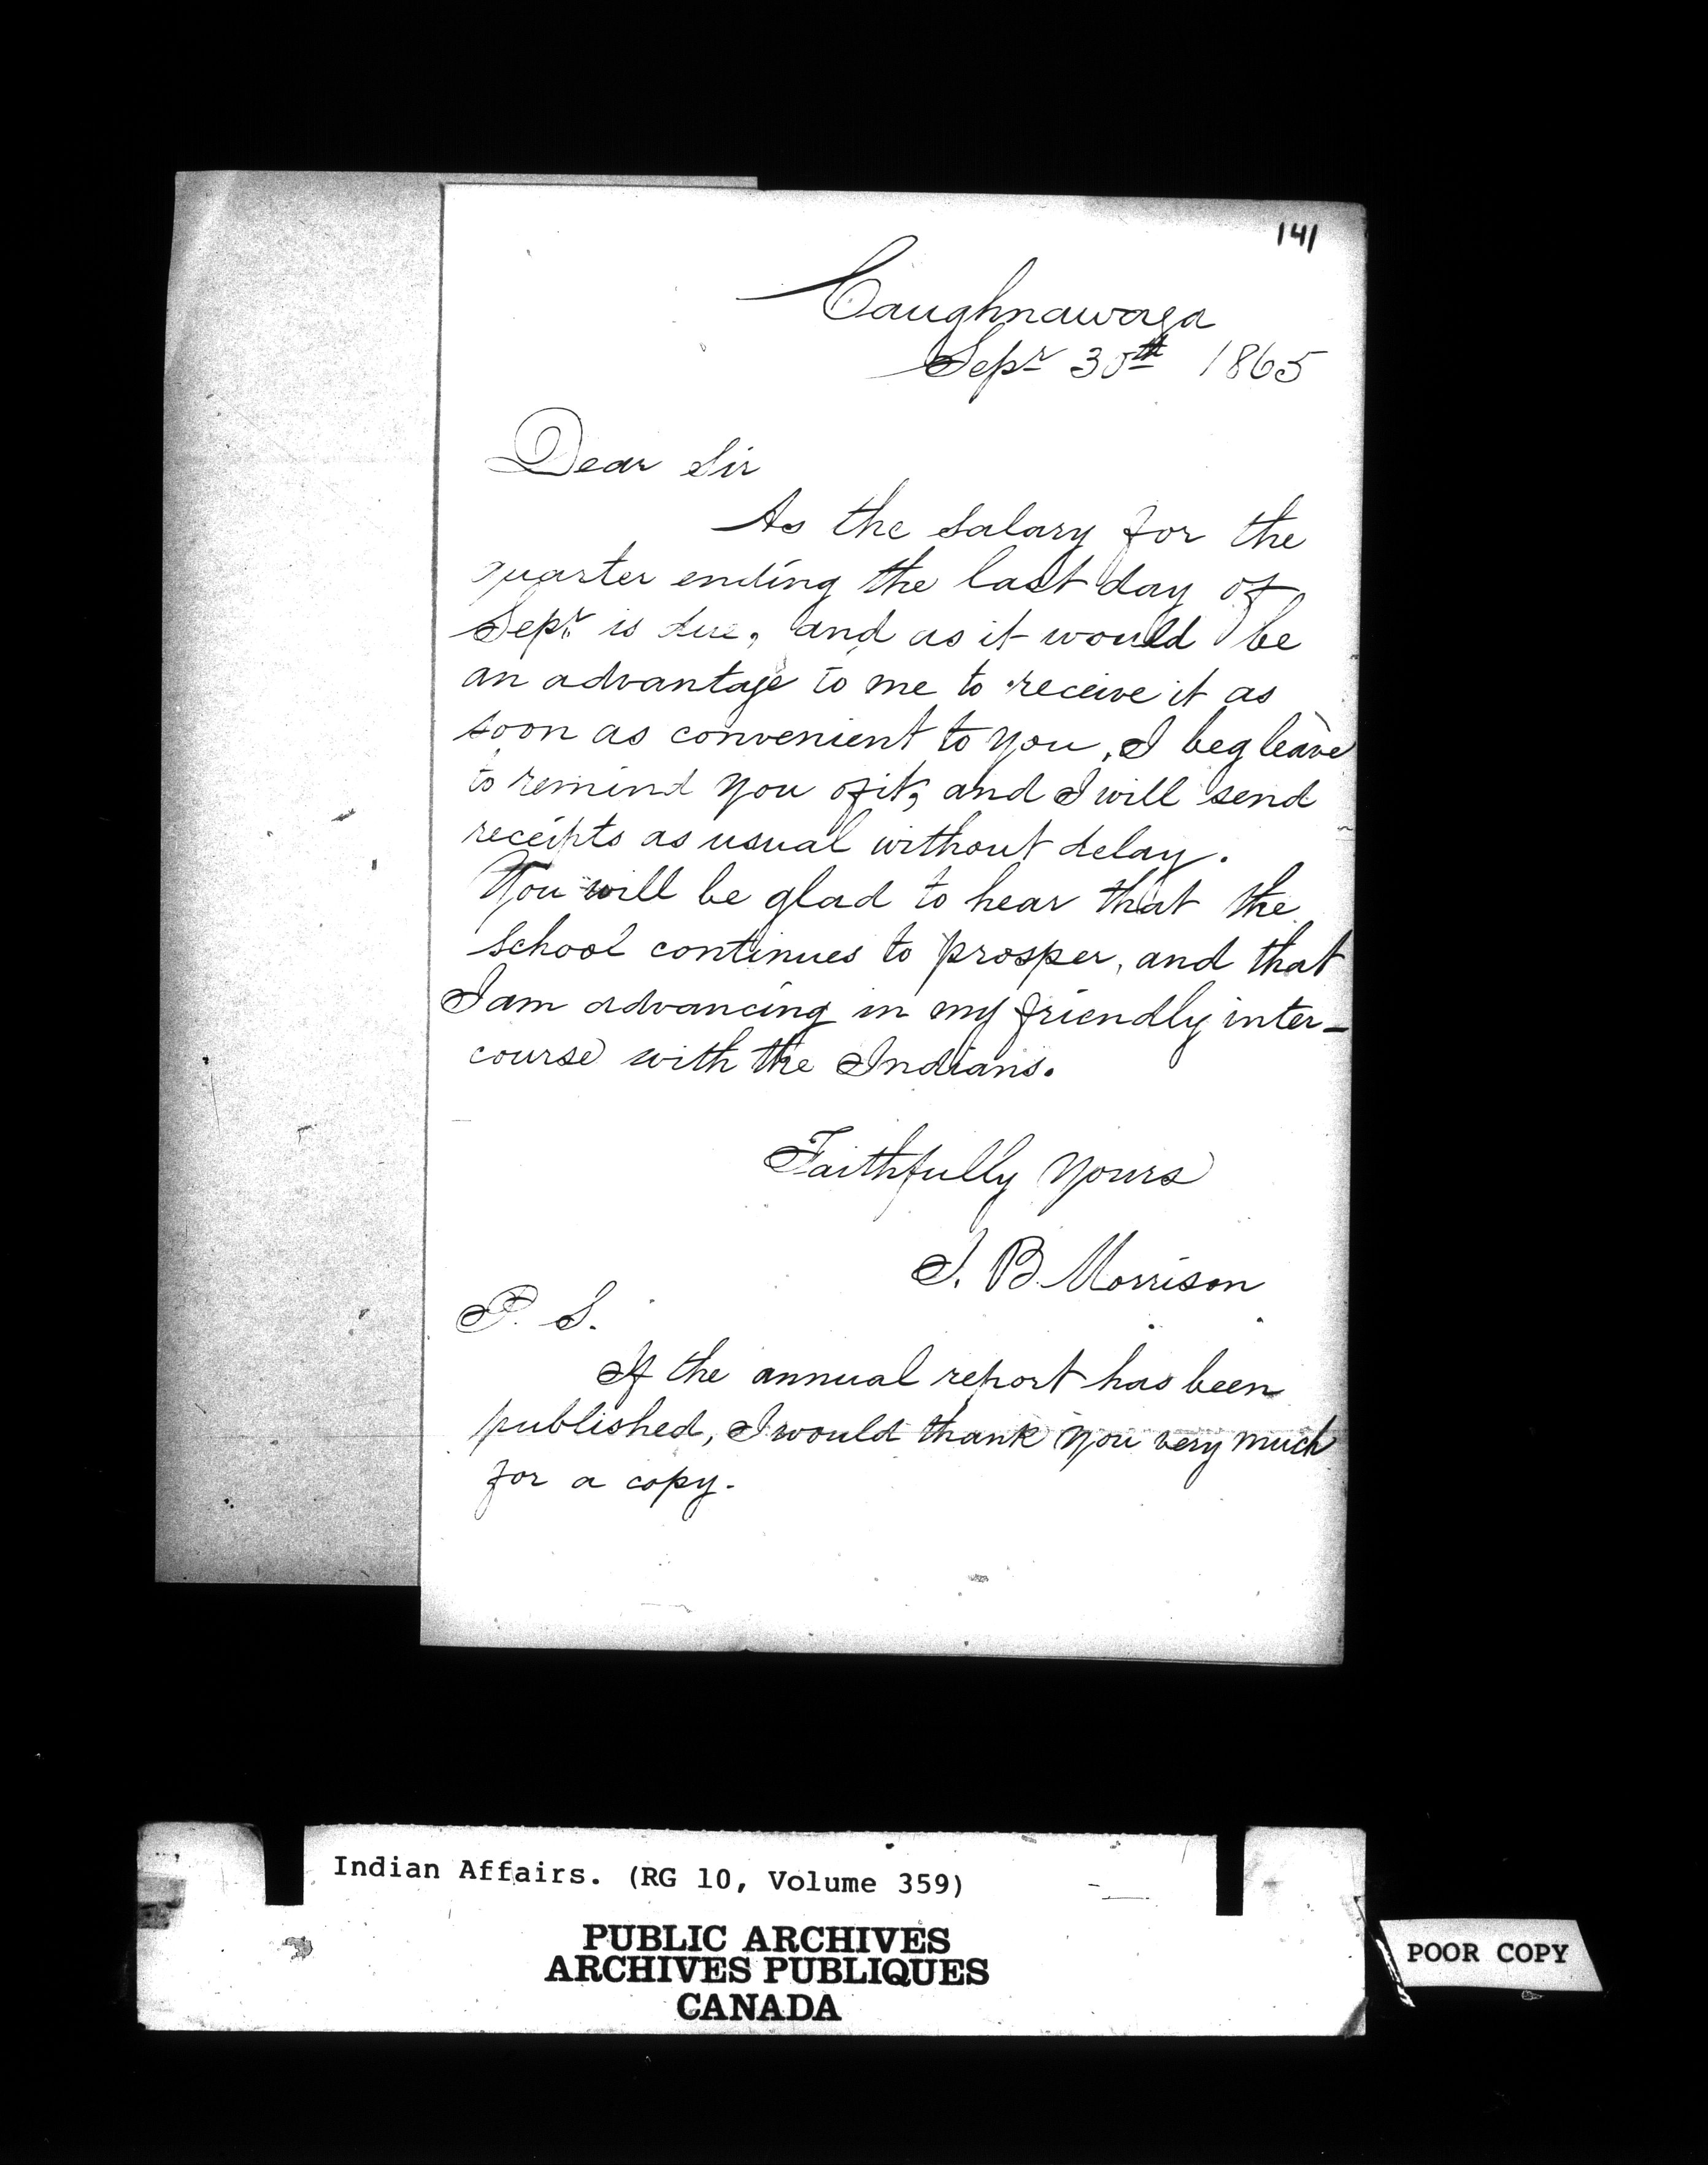 141
Caughnawaga
Sepr 30th 1865
Dear Sir
As the salary for the
quarter ending the last day of
Sepr. is due, and as it would be
an advantage to me to receive it as
soon as convenient to you, I beg leave
to remind you of it, and I will send
receipts as usual without delay.
You will be glad to hear that the
school continues to prosper, and that
I am advancing in my friendly inter-
course with the Indians.
Faithfully yours
J. B. Morrison
P. S.
If the annual report has been
published, I would thank you very much
for a copy.
Indian Affairs. (RG 10, Volume 359)
PUBLIC ARCHIVES
ARCHIVES PUBLIQUES
CANADA
POOR COPY